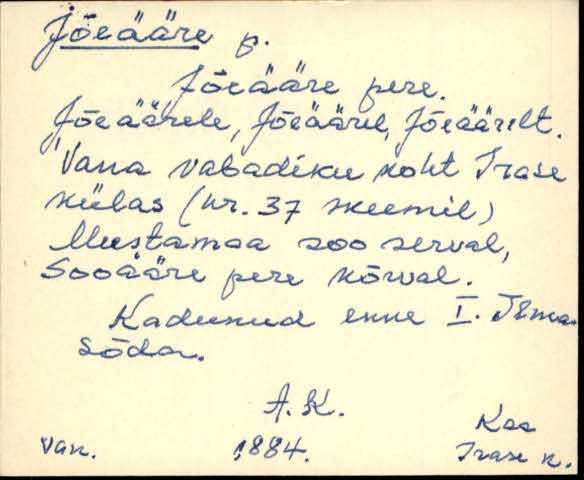 Jõeääre p.
Jõeääre pere.
Jõeäärele, Jõeäärel, Jõeäärilt.
Vana vabadiku koht Irase
külas (nr. 37 skeemil)
Mustamaa soo serval,
Sooääre pere kõrval.
Kadunud enne I. Ilma
sõda.
A.K.
Kaa
Van. 1884. Irase k.